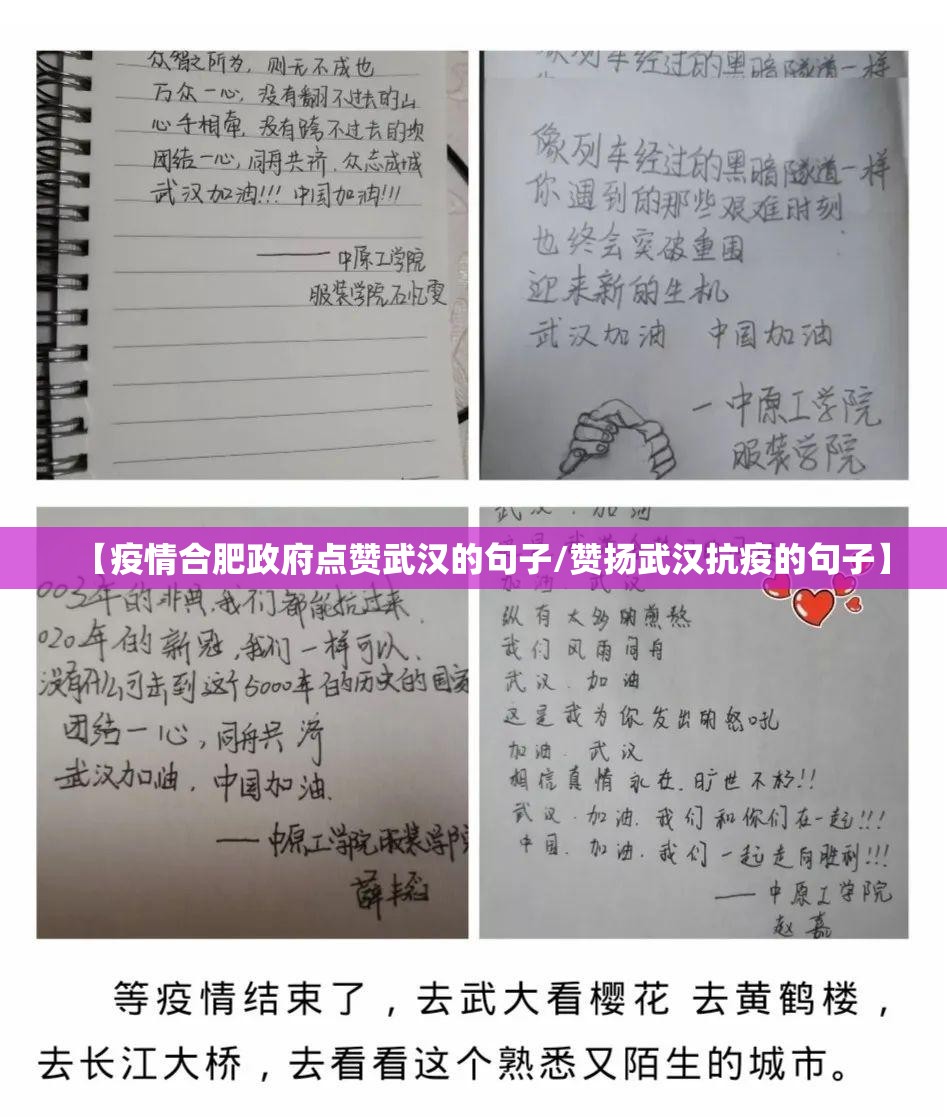 众智之所为，则无不成也
万众一心，没有翻不过去的山
心手相牵，没有跨不过去的坝
团结一心，同舟共济，众志成城
武汉加油!!! 中国加油!!!
——中原工学院
服装学院石忆雯
像列车经过的黑暗隧道一样
像列车经过的黑暗隧道一样
你遇到的那些艰难时刻
也终会突破重围
迎来新的生机
武汉加油 中国加油
—中原工学院
服装学院
【疫情合肥政府点赞武汉的句子/赞扬武汉抗疫的句子】
003年的非典，我们都能抗过来，
020年的新冠，我们一样可以，
没有什么可击到这个5000年的历史的国家
团结一心，同舟共济
武汉加油，中国加油.
——中原工学院服装学院
武汉.加油
加油.武汉
纵有太多的煎熬
我们风雨同舟
武汉.加油
这是我为你发出的怒吼
加油.武汉
相信真情永在.旷世不移!!
武汉.加油.我们和你们在一起!!!
中国.加油.我们一起走向胜利!!!
——中原工学院
赵嘉
等疫情结束了，去武大看樱花 去黄鹤楼，
去长江大桥，去看看这个熟悉又陌生的城市。